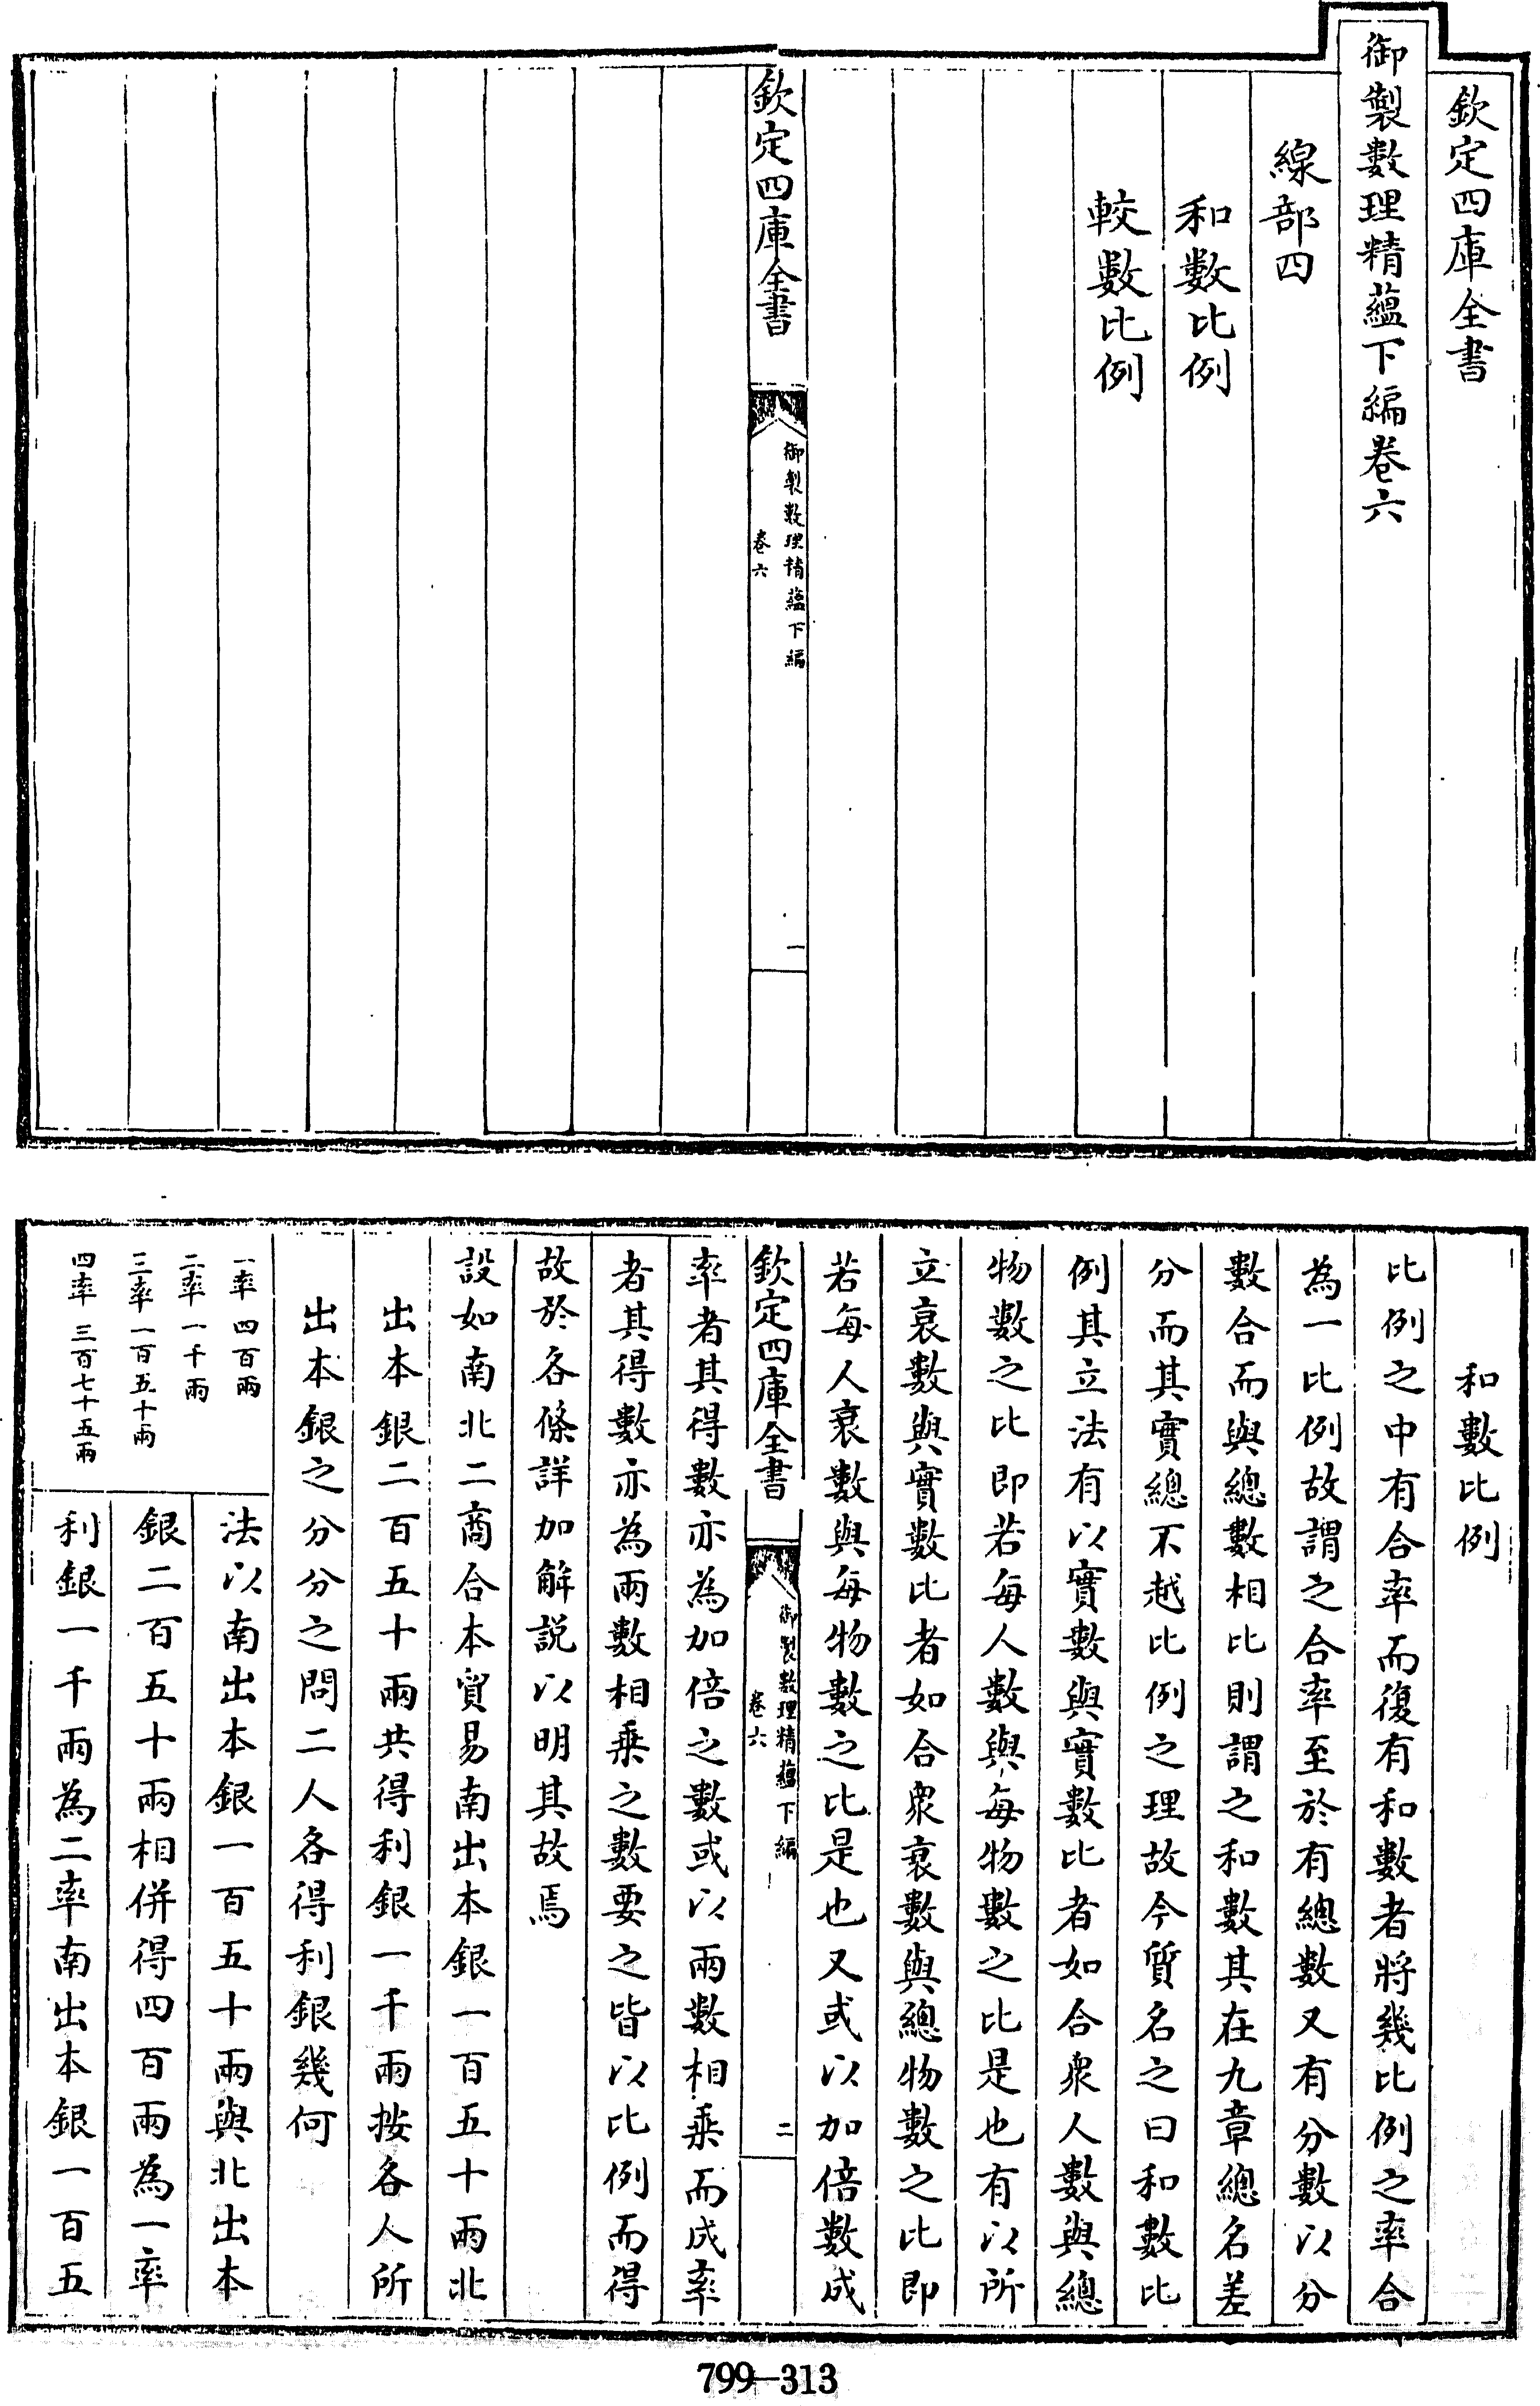 欽定四庫全書
御製數理精藴下編卷六
線部四
和數比例
較數比例
欽定四庫全書
御製數理精藴下編
卷六
一
和數比例
比例之中有合率而復有和數者將幾比例之率合
為一比例故謂之合率至於有總數又有分數以分
數合而與總數相比則謂之和數其在九章總名差
分而其實總不越比例之理故今質名之曰和數比
例其立法有以實數與實數比者如合衆人數與總
物數之比即若每人數與每物數之比是也有以所
立衰數與實數比者如合衆衰數與總物數之比即
若每人衰數與每物數之比是也又或以加倍數成
欽定四庫全書
御製數理精藴下編
卷六
二
率者其得數亦為加倍之數或以兩數相乗而成率
者其得數亦為兩數相乗之數要之皆以比例而得
故於各條詳加解説以明其故焉
設如南北二商合本貿易南出本銀一百五十兩北
出本銀二百五十兩共得利銀一千兩按各人所
出本銀之分分之問二人各得利銀幾何
一率 四百兩
二率 一千兩
三率 一百五十兩
四率 三百七十五兩
法以南出本銀一百五十兩與北出本
銀二百五十兩相併得四百兩為一率
利銀一千兩為二率南出本銀一百五
799-313